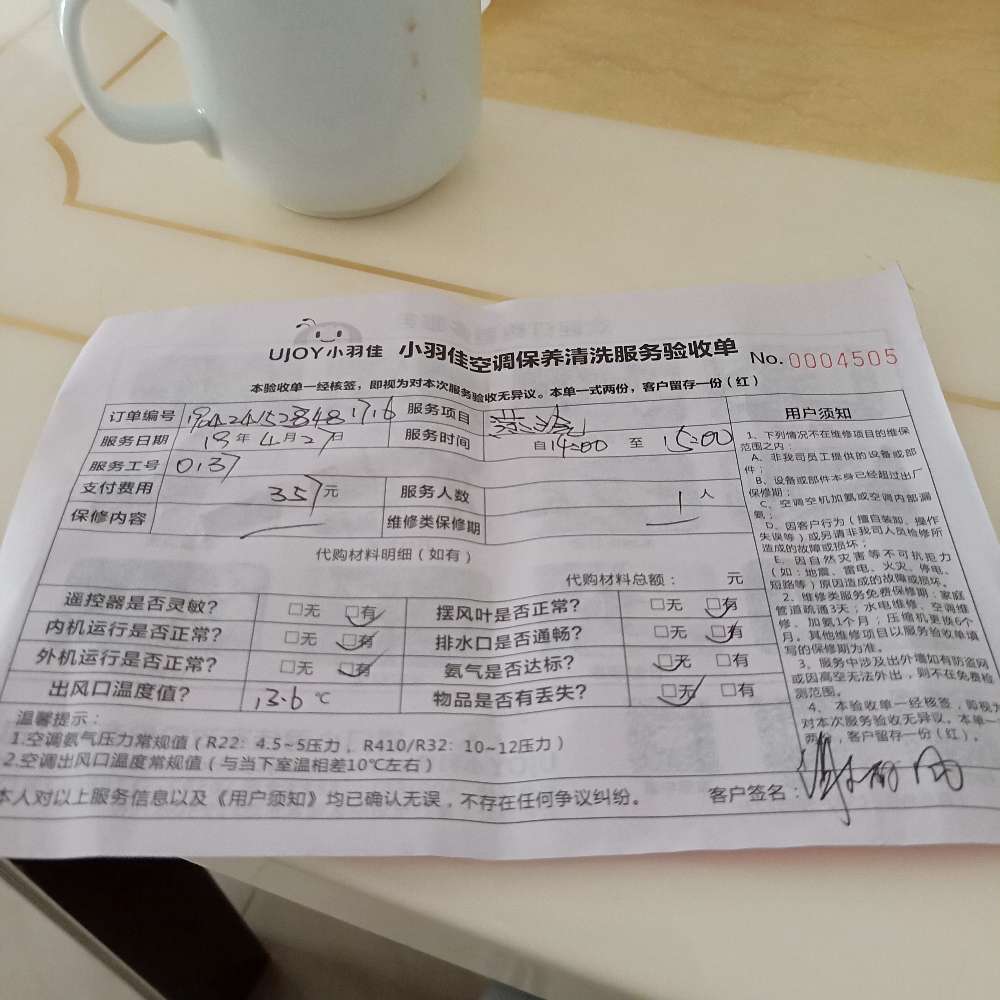 UJOY小羽佳 小羽佳空调保养清洗服务验收单 No.0004505
本验收单一经核签，即视为对本次服务验收无异议。本单一式两份，客户留存一份（红）
订单编号 服务项目
服务日期 19年4月27日 服务时间 自14:00 至 15:00
服务工号 0137
支付费用 357元 服务人数 1人
保修内容 维修类保修期
代购材料明细（如有）
代购材料总额： 元
遥控器是否灵敏？ □无 □有 摆风叶是否正常？ □无 □有
内机运行是否正常？ □无 □有 排水口是否通畅？ □无 □有
外机运行是否正常？ □无 □有 氨气是否达标？ □无 □有
出风口温度值？ 13.6 ℃ 物品是否有丢失？ □无 □有
温馨提示：
1.空调氨气压力常规值（R22：4.5~5压力，R410/R32：10~12压力）
2.空调出风口温度常规值（与当下室温相差10℃左右）
本人对以上服务信息以及《用户须知》均已确认无误，不存在任何争议纠纷。 客户签名：
用户须知
1、下列情况不在维修项目的维保
范围之内：
A、非我司员工提供的设备或部
件；
B、设备或部件本身已经超过出厂
保修期；
C、空调空机加氨或空调内部漏
氨；
D、因客户行为（擅自装卸、操作
失误等）或另请非我司人员检修所
造成的故障或损坏；
E、因自然灾害等不可抗拒力
（如：地震、雷电、火灾、停电、
短路等）原因造成的故障或损坏。
2、维修类服务免费保修期：家庭
管道疏通3天；水电维修、空调维
修、加氨1个月；压缩机更换6个
月。其他维修项目以服务验收单填
写的保修期为准。
3、服务中涉及出外墙如有防盗网
或因高空无法外出，则不在免费检
测范围。
4、本验收单一经核签，即视为
对本次服务验收无异议。本单一
两份，客户留存一份（红）。